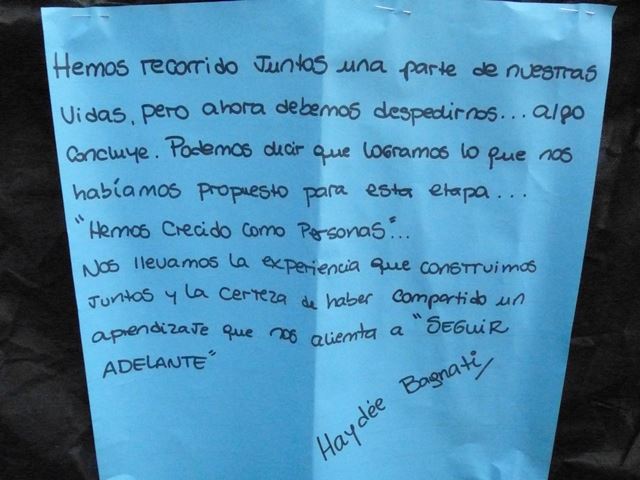 Hemos recorrido Juntos una parte de nuestras
Vidas, pero ahora debemos despedirnos... algo
Concluye. Podemos decir que logramos lo que nos
habíamos propuesto para esta etapa...
"Hemos Crecido como Personas"...
Nos llevamos la experiencia que construimos
Juntos y la certeza de haber compartido un
aprendizaje que nos alienta a "SEGUIR
ADELANTE"
Haydée Bagnati